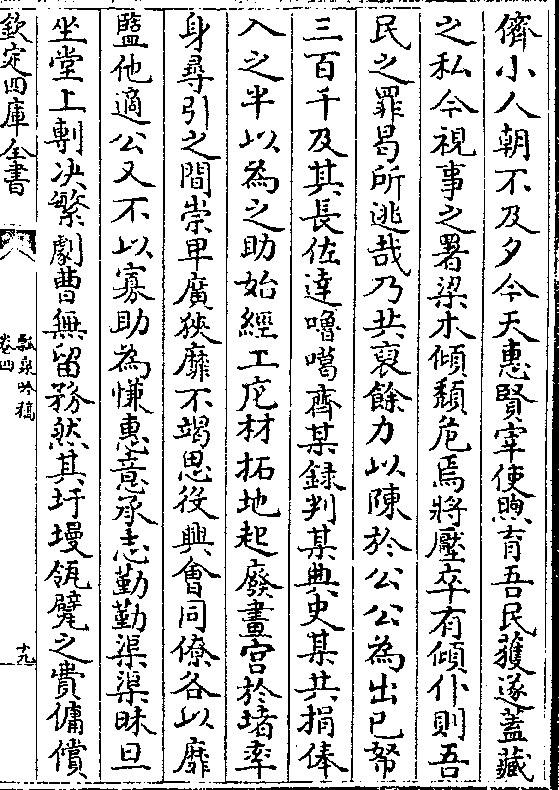 儕小人朝不及夕今天惠賢宰使煦育吾民獲遂蓋藏
之私今視事之署梁木傾頽危焉將壓卒有傾仆則吾
民之罪曷所逃哉乃共裒餘力以陳於公公為出已帑
三百千及其長佐達嚕噶齊某録判某典史某共捐俸
入之半以為之助始經工庀材拓地起廢畫宫於堵率
身尋引之間崇卑廣狹靡不竭思役興會同僚各以靡
盬他適公又不以寡助為慊惠意承志勤勤渠渠昧旦
坐堂上剸决繁劇曹無留務然其圬墁瓴甓之費傭償
欽定四庫全書
瓢泉吟稿
卷四
十九